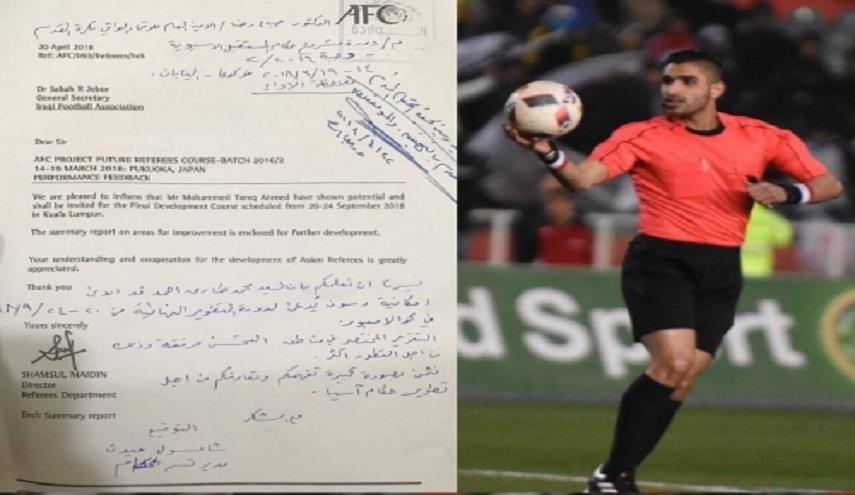 AFC
الدكتور صباح رضا / الامين العام للاتحاد العراقي لكرة القدم
20 April 2018
Ref: AFC/093/Referees/hck
م / دورة مشروع حكام المستقبل الاسيوية
١٤-١٩/٣/٢٠١٨ فوكوكا - اليابان.
Dr Sabah R Jebur
General Secretary
Iraqi Football Association
Dear Sir
AFC PROJECT FUTURE REFEREES COURSE-BATCH 2016/2
14-19 MARCH 2018: FUKUOKA, JAPAN
PERFORMANCE FEEDBACK
We are pleased to inform that Mr Mohammed Tareq Ahmed have shown potential and
shall be invited for the Final Development Course scheduled from 20-24 September 2018
in Kuala Lumpur.
The summary report on areas for improvement is enclosed for further development.
Your understanding and cooperation for the development of Asian Referees is greatly
appreciated.
Thank you
يسرنا ان نعلمكم بان السيد محمد طارق احمد قد ابدى
امكانية وسوف يُدعى لدورة التطوير النهائية من ٢٠-٢٤/٩/
في كوالالمبور.
Yours sincerely
التقرير المختصر في مناطق التحسن مرفقة وذلك
من اجل التطور اكثر.
SHAMSUL MAIDIN
Director
Referees Department
نثمن بصورة كبيرة تفهمكم وتعاونكم من اجل
تطوير حكام آسيا.
مع الشكر
Encl: Summary report
التوقيع
شامسول ميدين
مدير قسم الحكام
d Sport